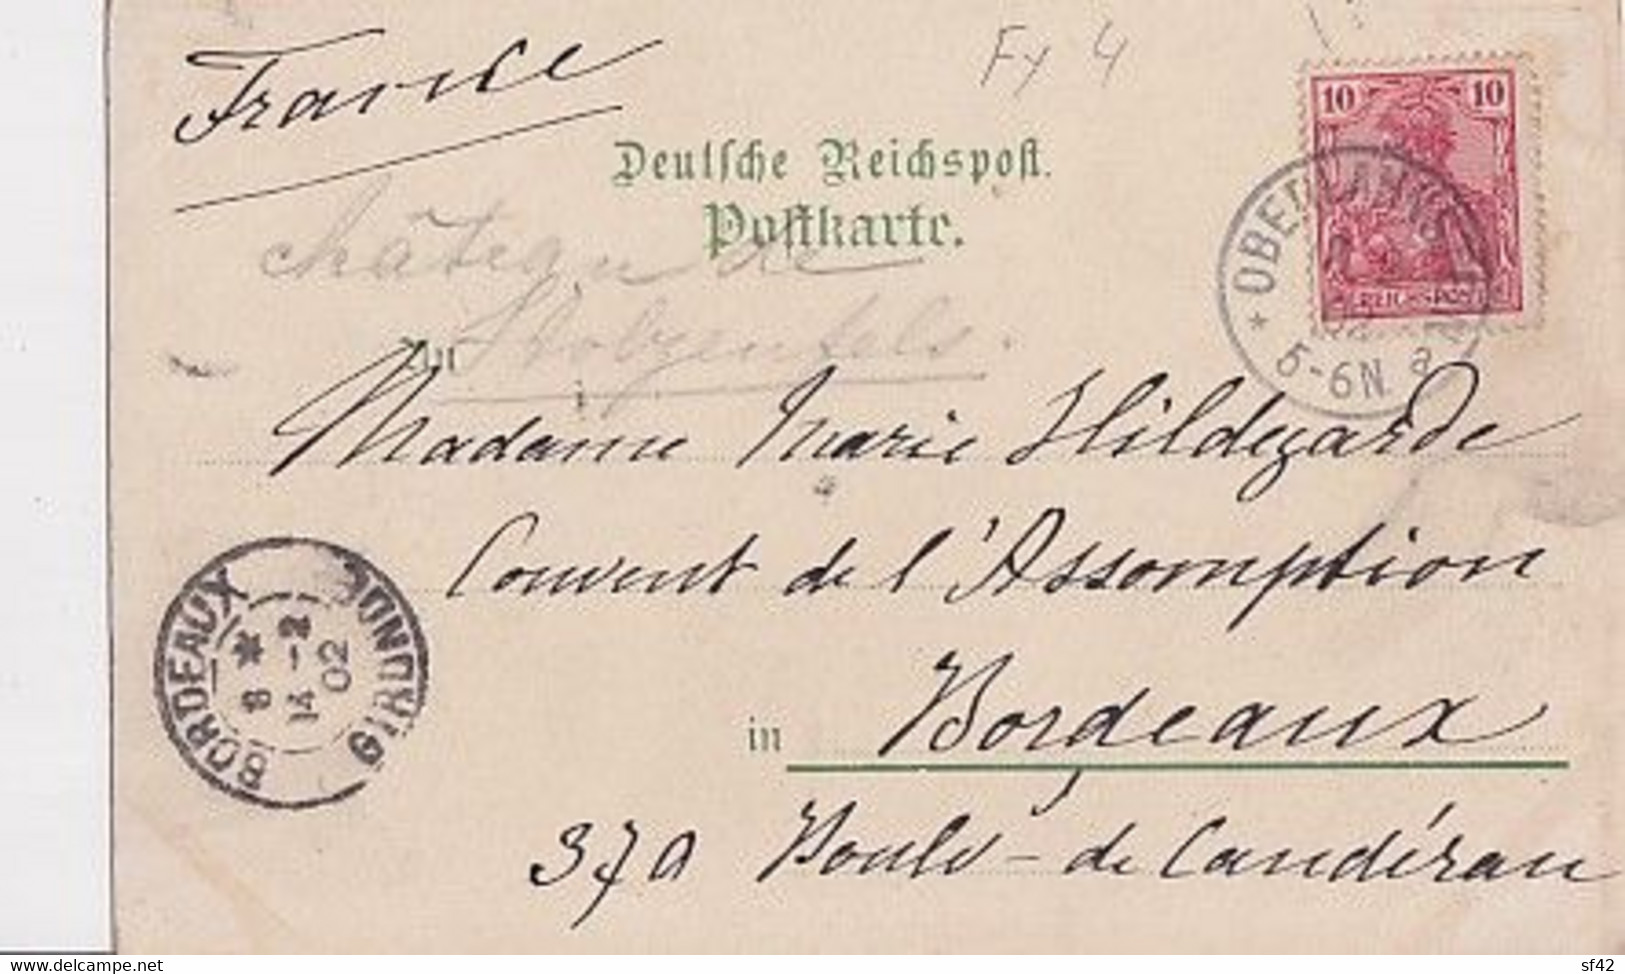 France
Fy 4
10 10
REICHSPOST
Deutsche Reichspost.
Postkarte.
château de
Stolzenfels.
* OBERLAHNSTEIN
5-6N. a
An
Madame Marie Hildegarde
Couvent de l'Assomption
BORDEAUX GIRONDE
8 *
14 -2
02
in Bordeaux
370 Boulv - de Caudéran
delcampe.net
sf42